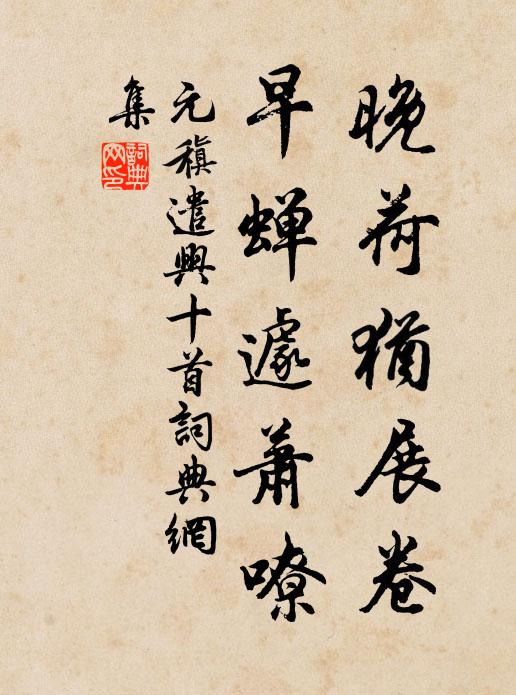 晚荷猶展卷
早蟬遽蕭嘹
元稹遣興十首詞典網
集
詞典
网印